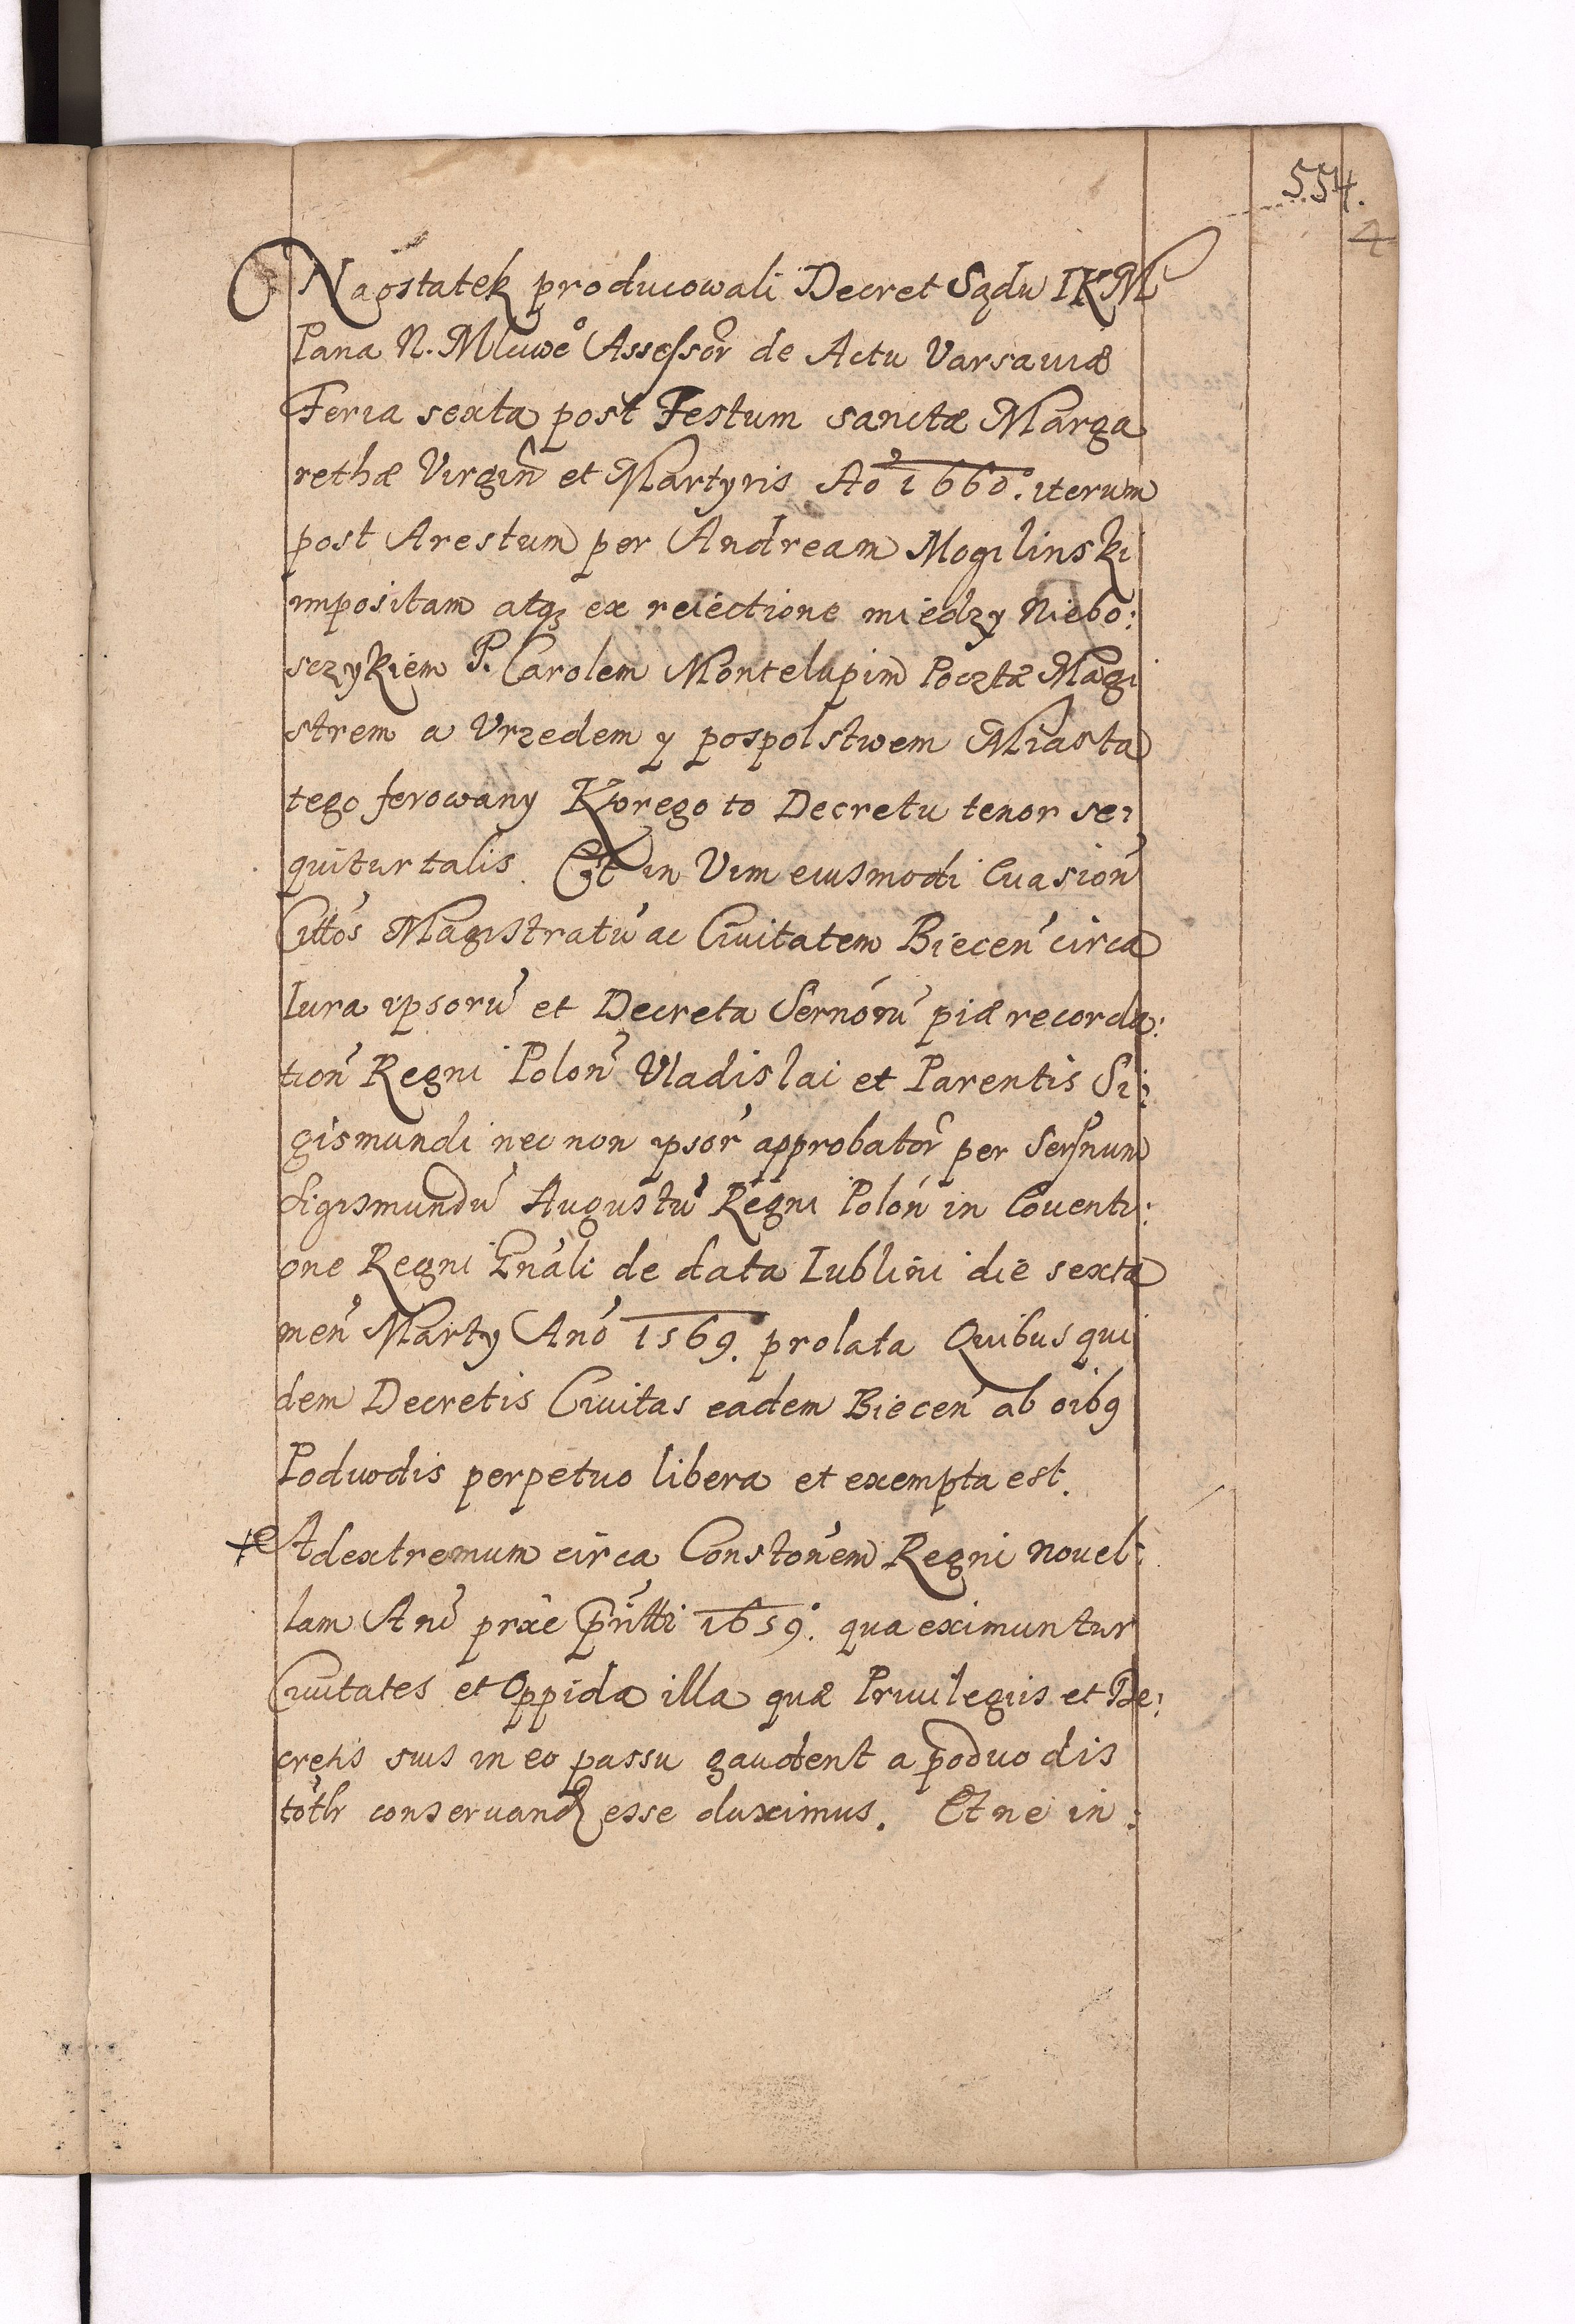 554.
4
Naostatek producowali Decret Sądu IKM
Pana N. Młciwe͠o Assessor͠ de Actu Varsauiæ
Feria sexta post Festum sanctæ Marga
rethæ Virgin͠ et Martyris Ao͠ 1660. iterum
post Arestum per Andream Mogilinski
impositam atq; ex reiectione między Niebo:
sczykiem P. Carolem Montelupim Pocztæ Magi
strem a Vrzedem y pospolstwem Miasta
tego ferowany Ktorego to Decretu tenor se:
quitur talis. Et in Vim eiusmodi Euasion͠
Citto͠s Magistratu͠ ac Ciuitatem Biecen͠ circa
Iura ipsoru͠ et Decreta Serno͠ru͠ piæ recorda:
tion͠ Regni Polon͠ Vladislai et Parentis Si:
gismundi nec non ipsor͠ approbator͠ per Sers͠num
Sigismundu͠ Augustu͠ Regni Polon͠ in Couenti:
one Regni Gna͠li de data Lublini die sexta
men͠ Marty Ano͠ 1569. prolata Quibus qui
dem Decretis Ciuitas eadem Biecen͠ ab oib9
Podwodis perpetuo libera et exempta est.
Adextremum circa Consto͠nem Regni nouel:
lam An͠i præ͠e pr͠itti 1659. qua eximuntur
Ciuitates et Oppida illa quæ Priuilegiis et De:
cretis suis in eo passu gaudent a poduodis
tot͠lr conseruand͠ esse duximus. Et ne in: